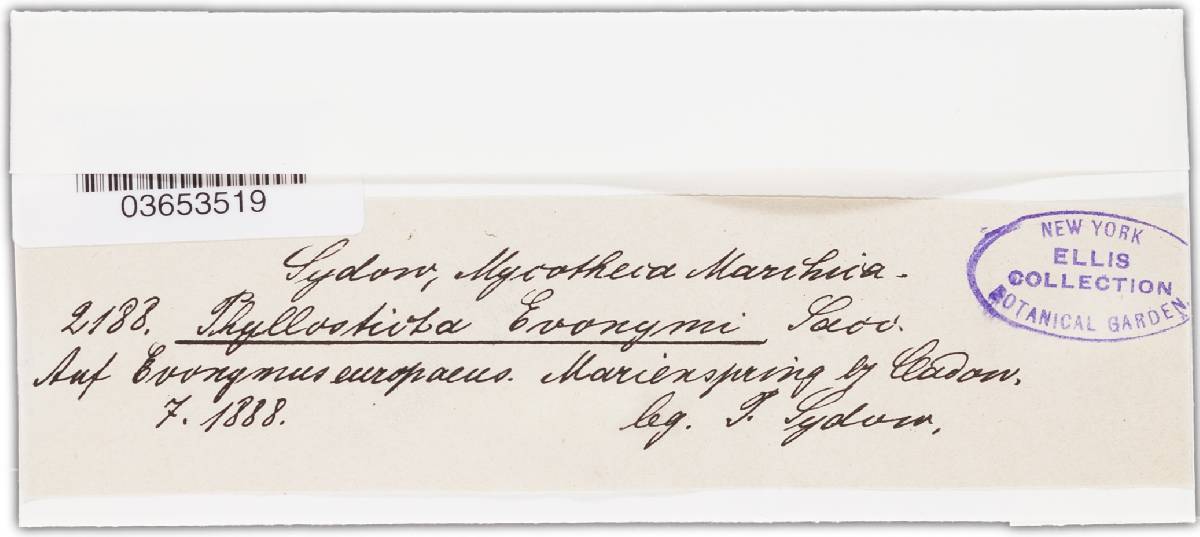 03653519
Sydow, Mycotheca Marchica.
2188. Phyllosticta Evonymi Sacc.
Auf Evonymus europaeus. Marienspring by Cladow.
7. 1888. leg. P. Sydow.
NEW YORK
ELLIS
COLLECTION
BOTANICAL GARDEN